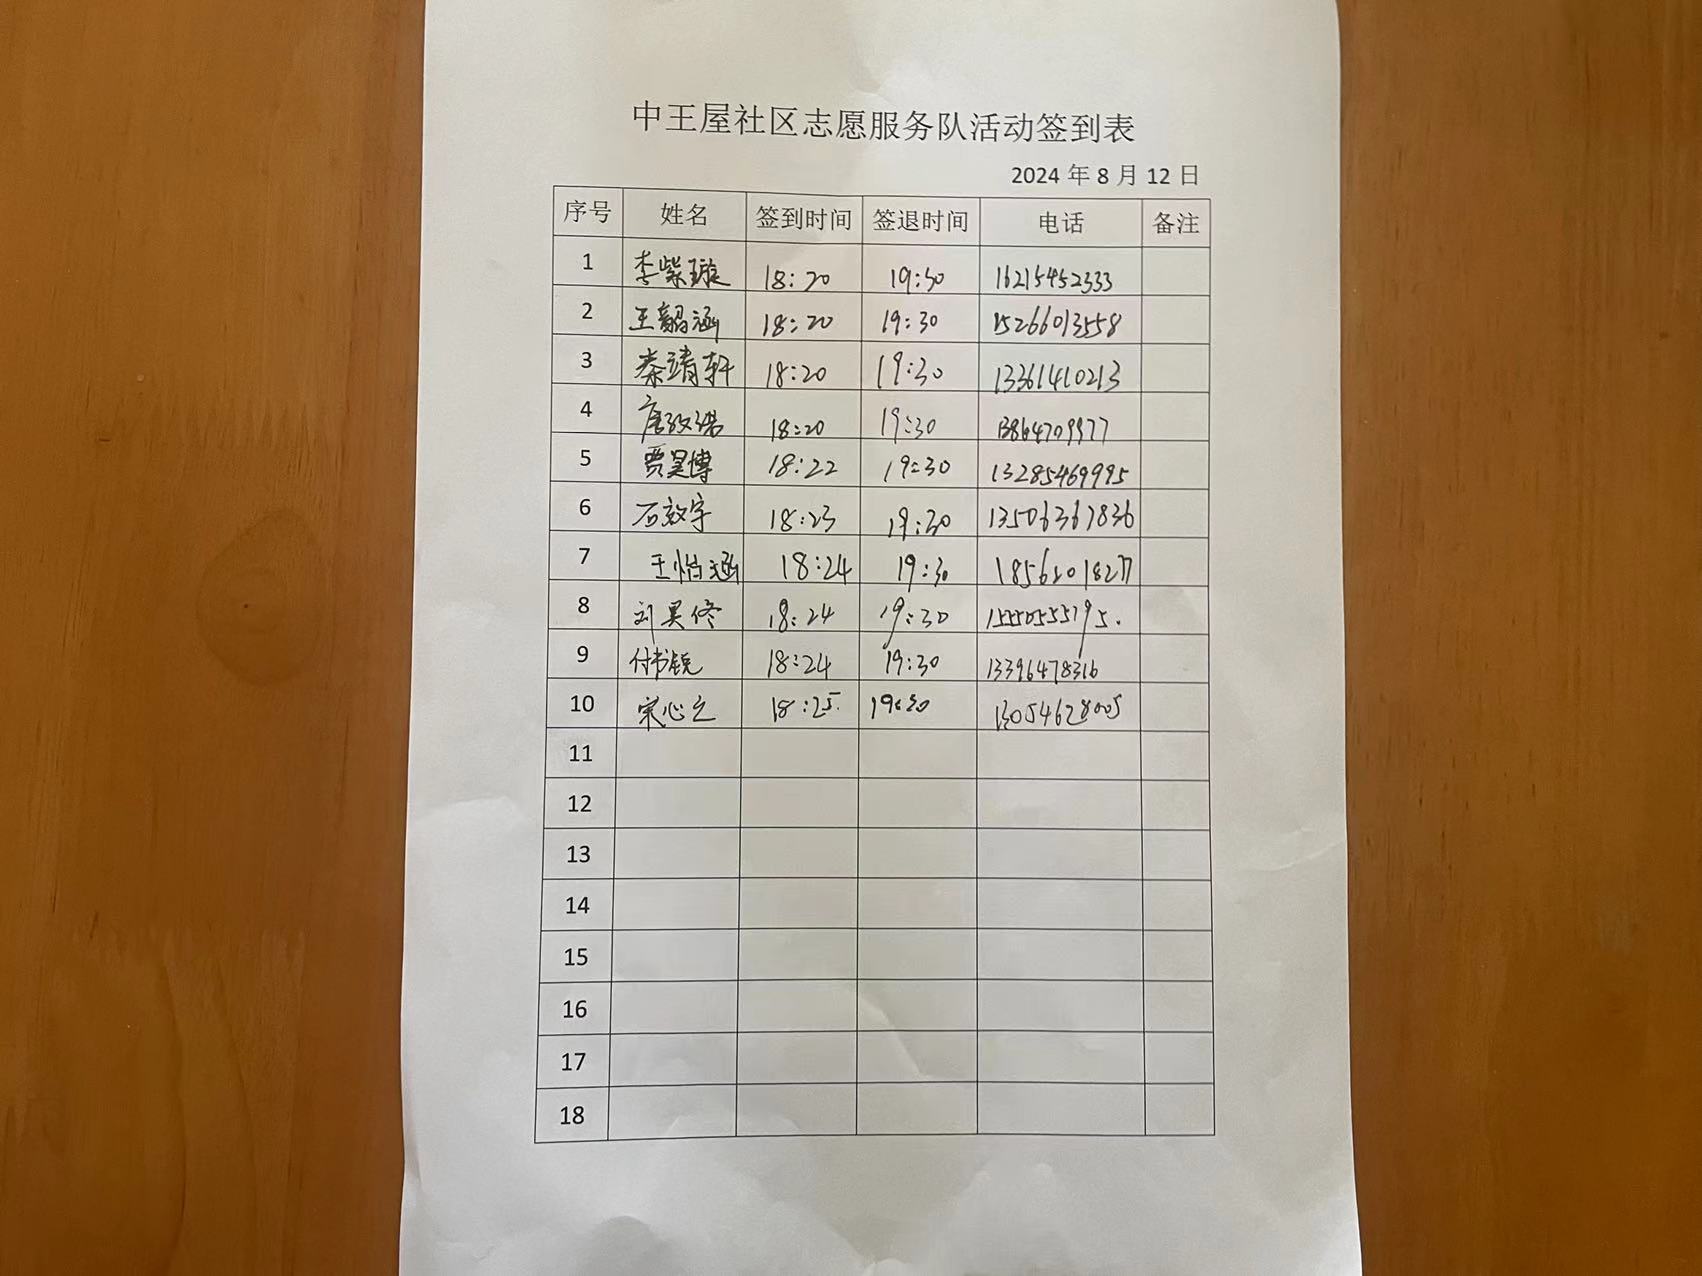 中王屋社区志愿服务队活动签到表
2024 年 8 月 12 日
序号 姓名 签到时间 签退时间 电话 备注
1 李紫璇 18:20 19:30 16215452333
2 王韶涵 18:20 19:30 15266013558
3 秦靖轩 18:20 19:30 13361410213
4 18:20 19:30
5 贾昊博 18:22 19:30 13285469995
6 石效宇 18:23 19:30 13506367836
7 王怡涵 18:24 19:30
8 刘昊修 18:24 19:30 15550555795.
9 付书锐 18:24 19:30 13396478316
10 宋心之 18:25. 19:30 13054628005
11
12
13
14
15
16
17
18